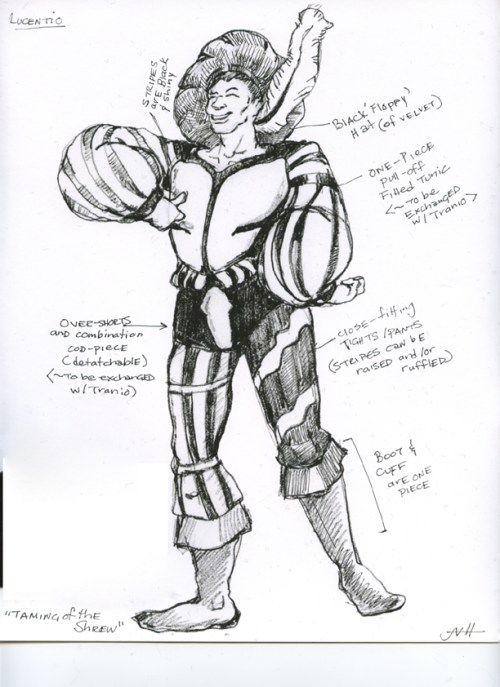 LUCENTIO
STRIPES
are Black
& shiny
BLACK 'Floppy'
Hat (of VELVET)
ONE-PIECE
pull-off
Filled Tunic
<~To be
EXCHANGED
W/Tranio>
OVER-SHORTS
and combination
COD-PIECE
(detatchable)
<~To be exchanged
w/Tranio)
close-fitting
TIGHTS/PANTS
(STRIPES can be
raised and/or
ruffled)
BOOT &
CUFF
are ONE
PIECE
"TAMING of the
SHREW"